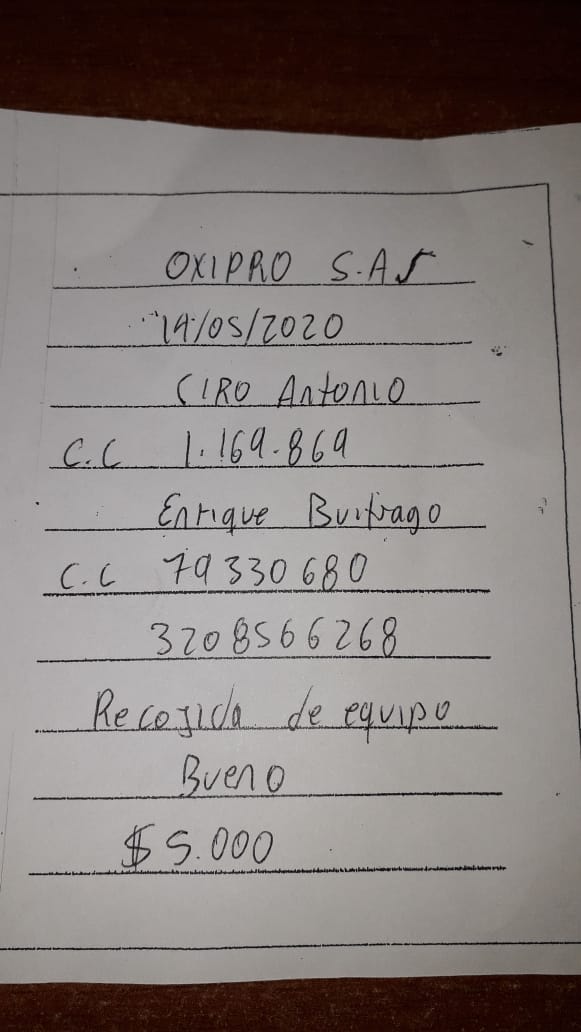 OXIPRO S.AS
19/05/2020
CIRO AntoNIO
C.C 1.169.869
Enrique Buitrago
C.C 79330680
3208566268
Recojida de equipo
Bueno
$ 5.000